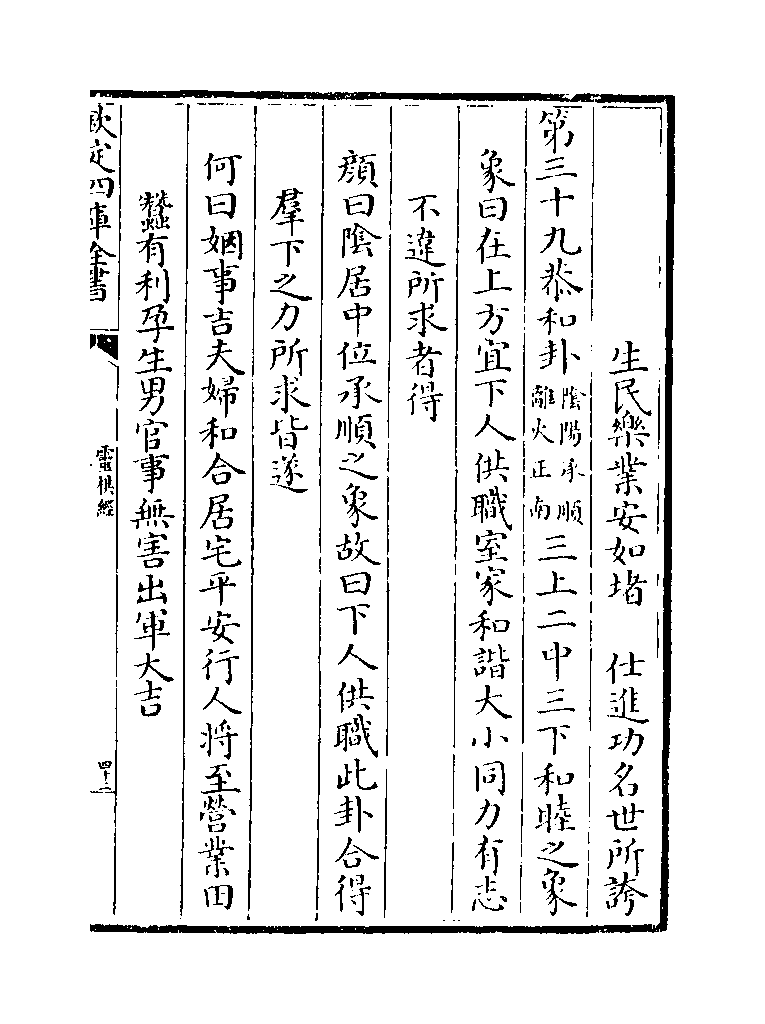 生民樂業安如堵　仕進功名世所誇
第三十九恭和卦陰陽承順離火正南三上二中三下和睦之象
象曰在上方宜下人供職室家和諧大小同力有志
不違所求者得
顔曰陰居中位承順之象故曰下人供職此卦合得
羣下之力所求皆遂
何曰姻事吉夫婦和合居宅平安行人將至營業田
蠶有利孕生男官事無害出軍大吉
欽定四庫全書
靈棋經
四十二